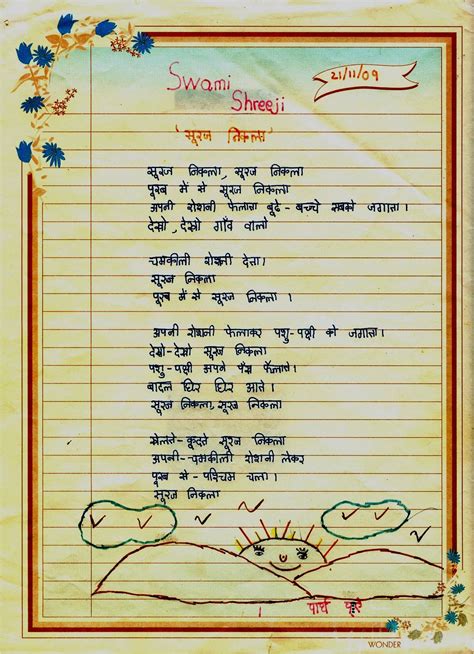 Swami
Shreeji
21/11/09
"सूरज निकला"
सूरज निकला, सूरज निकला
पूरब में से सूरज निकला
अपनी रोशनी फेलाता बूढे - बच्चे सबको जगाता।
देखो, देखो गाँव वालो
चमकीली रोशनी देता।
सूरज निकला
पूरब में से सूरज निकला।
अपनी रोशनी फेलाकर पशु-पक्षी को जगाता।
देखो-देखो सूरज निकला
पशु-पक्षी अपने पंख फेलाते।
बादल घिर घिर आते।
सूरज निकला, सूरज निकला
खेलते-कूदते सूरज निकला
अपनी-चमकीली रोशनी लेकर
पूरब से-पश्चिम चला।
सूरज निकला
पार्थ
WONDER